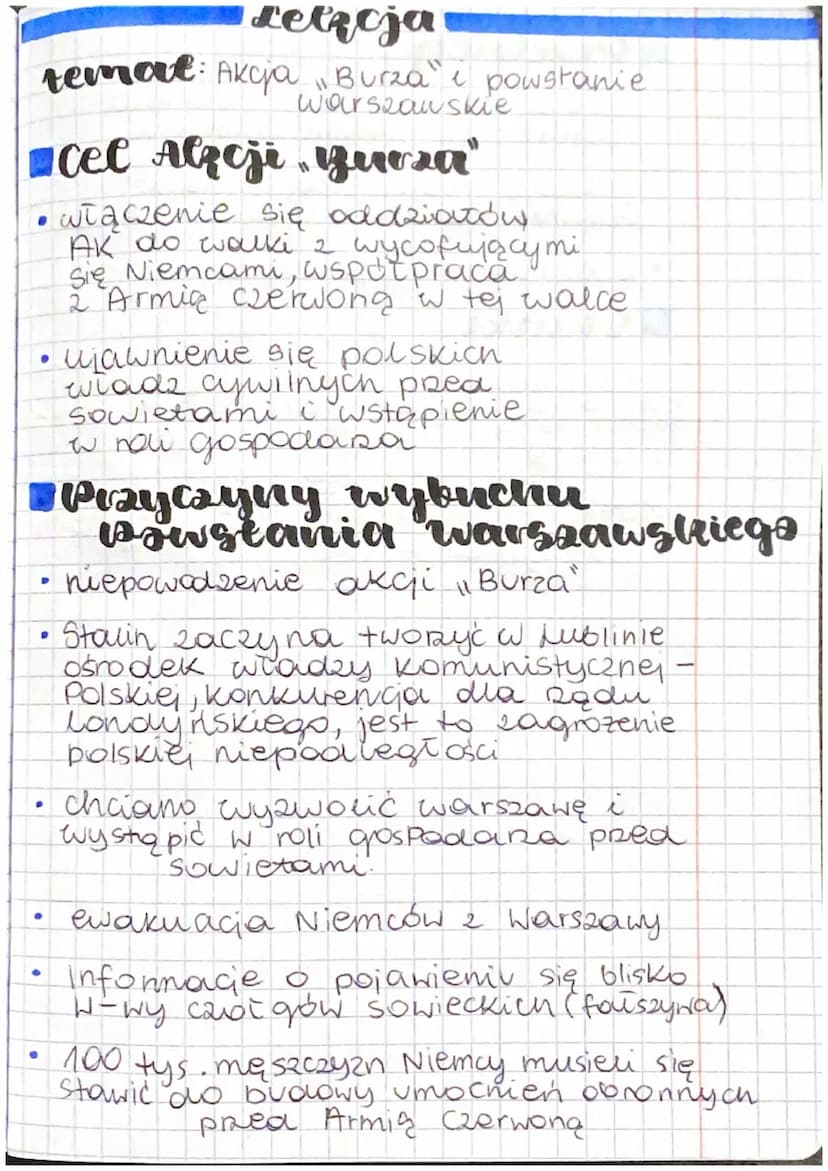 Lekcja
temat: Akcja „Burza" i powstanie
warszawskie
Cel Akcji „Burza"
• włączenie się oddziałów
AK do walki z wycofującymi
się Niemcami, współpraca
z Armią Czerwoną w tej walce
• ujawnienie się polskich
władz cywilnych przed
sowietami i wstąpienie
w roli gospodarza
Przyczyny wybuchu
powstania warszawskiego
• niepowodzenie akcji „Burza"
• Stalin zaczyna tworzyć w Lublinie
ośrodek władzy komunistycznej –
Polskiej, konkurencja dla rządu
Londyńskiego, jest to zagrożenie
polskiej niepodległości
• chciano wyzwolić warszawę i
wystąpić w roli gospodarza przed
sowietami.
• ewakuacja Niemców z Warszawy
• Informacje o pojawieniu się blisko
W-wy czołgów sowieckich (fałszywa)
• 100 tys. męszczyzn Niemcy musieli się
stawić do budowy umocnień obronnych
przed Armią Czerwoną